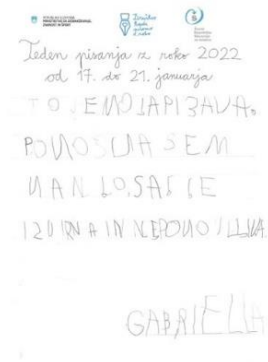 REPUBLIKA SLOVENIJA
MINISTRSTVO ZA IZOBRAŽEVANJE,
ZNANOST IN ŠPORT
Teden pisanja z roko 2022
od 17. do 21. januarja
TO JE MOJA PISAVA.
PONOSNA SEM
NANJO, SAJ JE
IZVIRNA IN NEPONOVLJIVA.
GABRIELLA